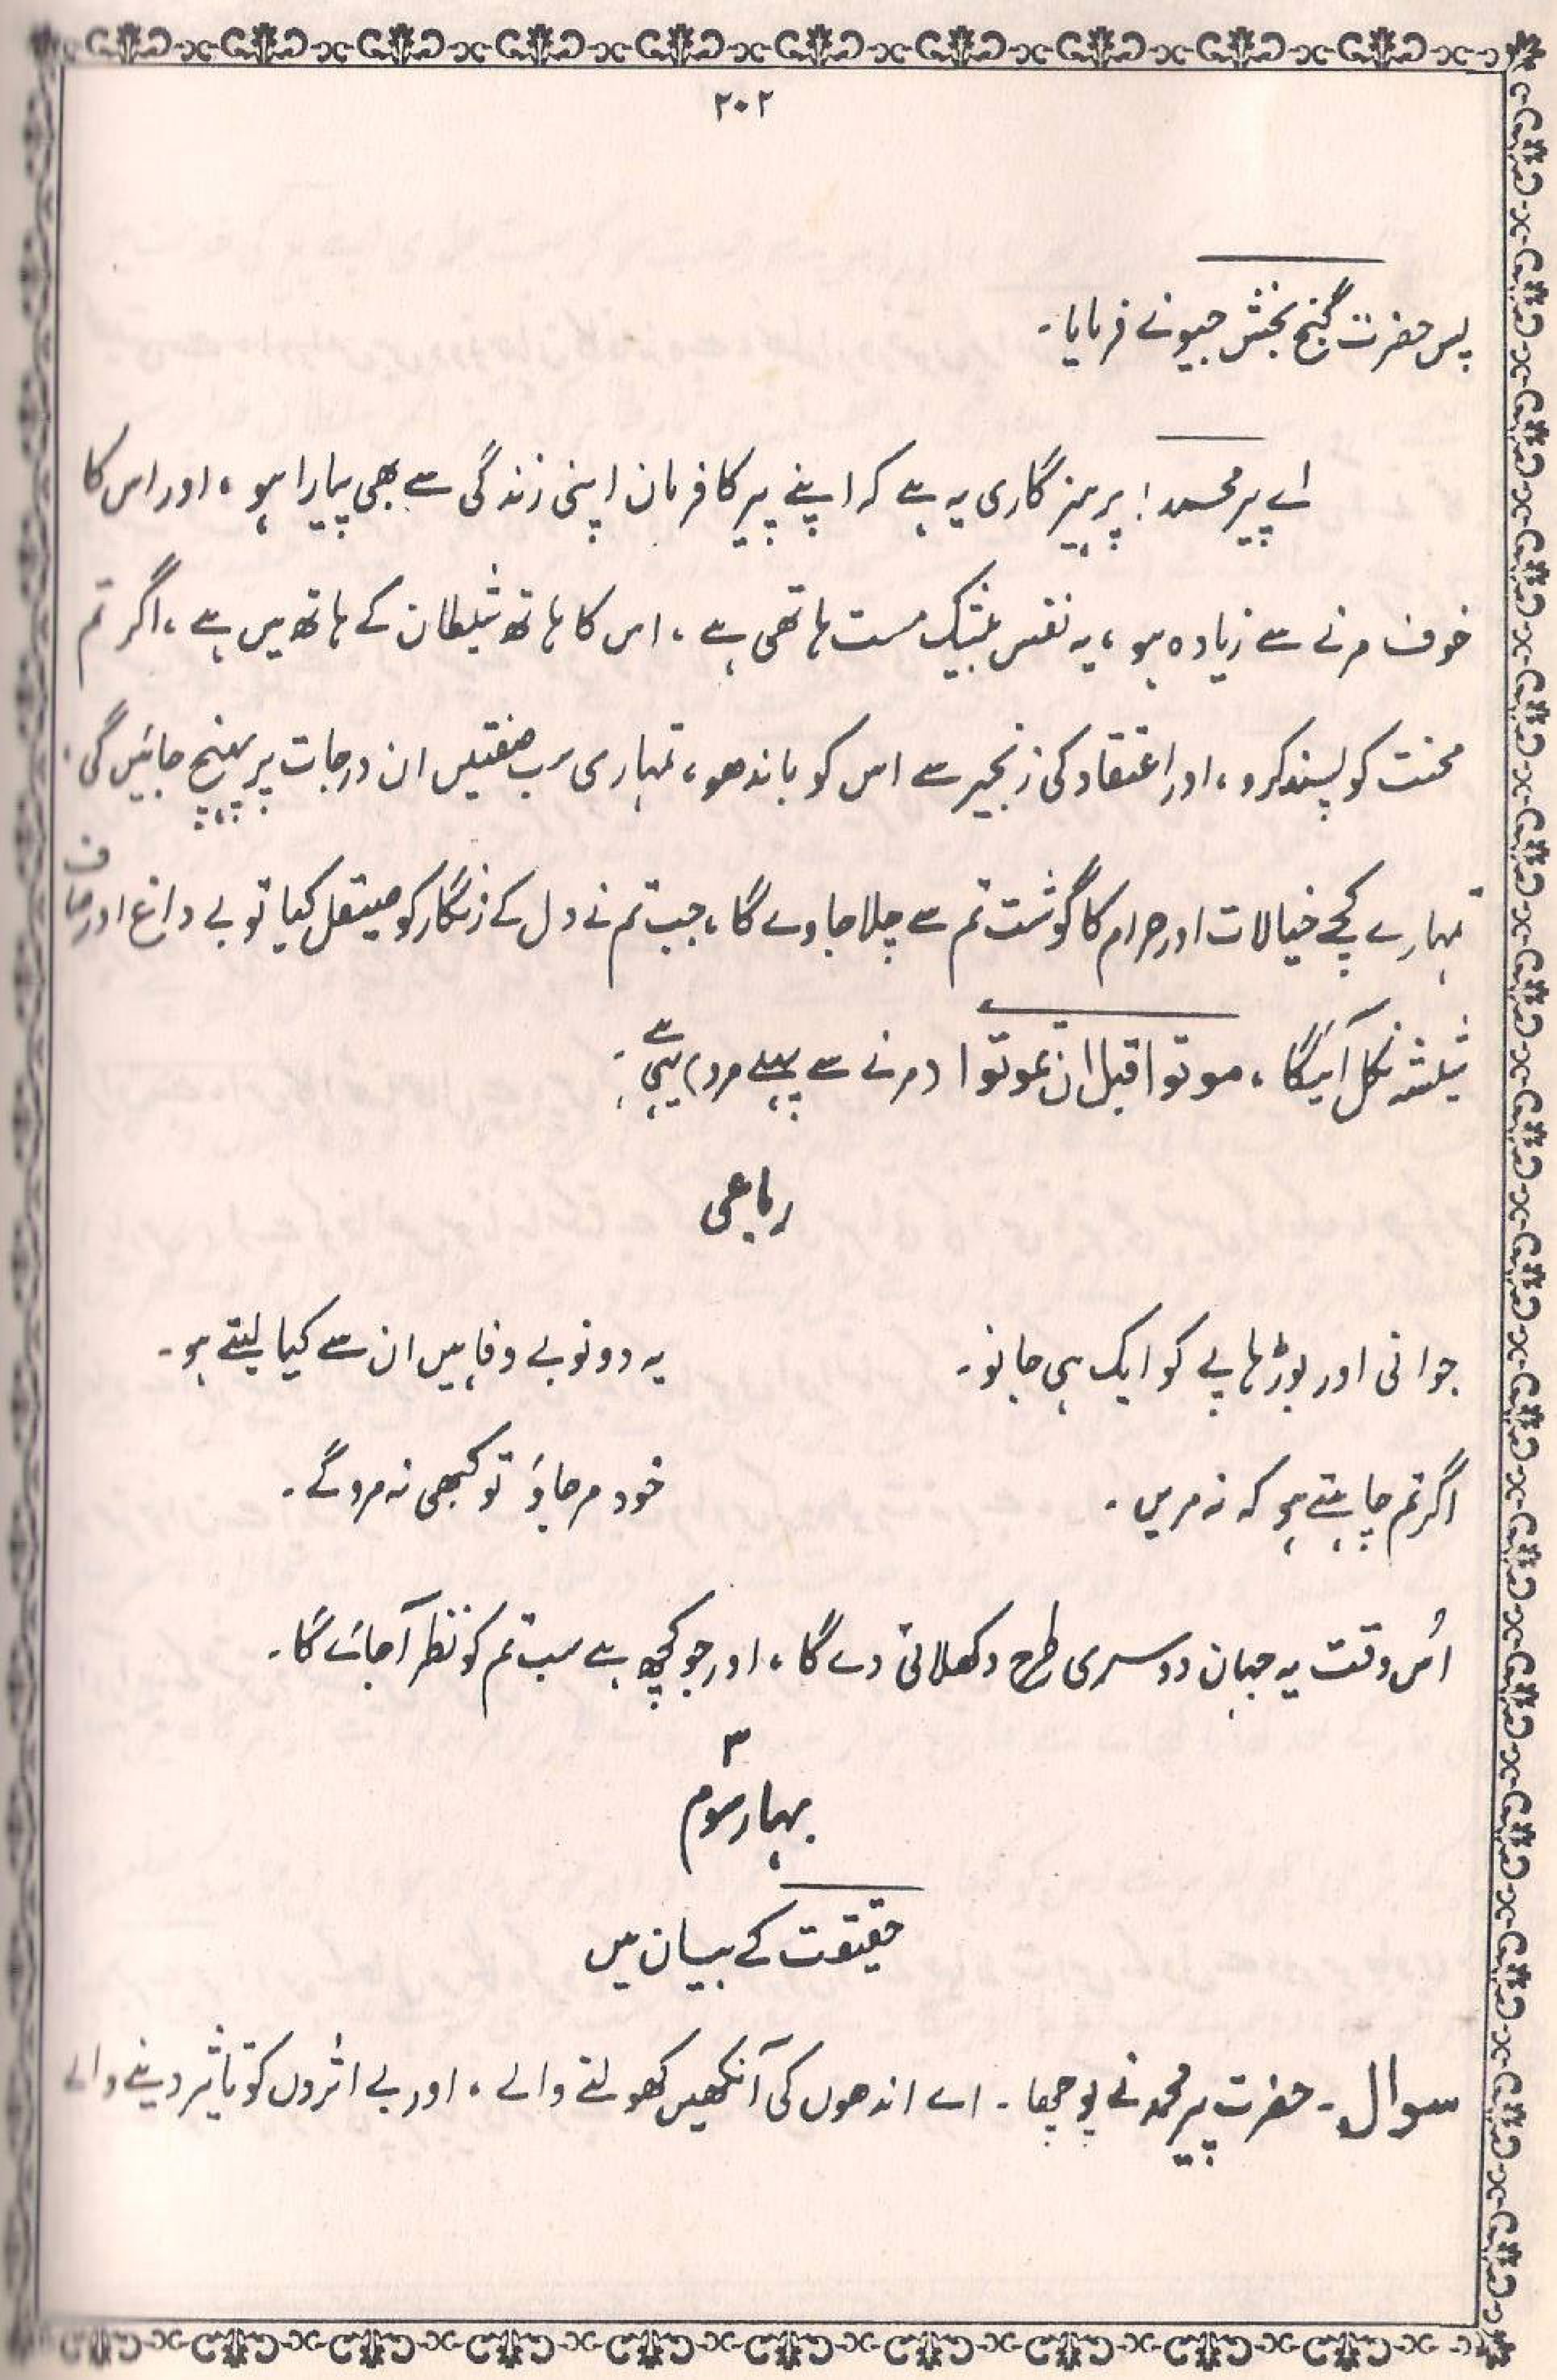 ۲۰۲
پس حضرت گنج بخش جیو نے فرمایا۔
اے پیر محمد! پرہیزگاری یہ ہے کہ اپنے پیر کا فرمان اپنی زندگی سے بھی پیارا ہو، اور اس کا
خوف مرنے سے زیادہ ہو، یہ نفس بیشک مست ہاتھی ہے، اس کا ہاتھ شیطان کے ہاتھ میں ہے، اگر تم
محنت کو پسند کرو، اور اعتقاد کی زنجیر سے اس کو باندھو، تمہاری سب صفتیں ان درجات پر پہنچ جائیں گی۔
تمہارے کچے خیالات اور حرام کا گوشت تم سے چلا جاوے گا، جب تم نے دل کے زنگار کو صیقل کیا تو بے داغ اور صاف
شیشہ نکل آئیگا، موتوا قبل ان تموتوا (مرنے سے پہلے مرو) یہی ہے۔
رباعی
جوانی اور بوڑھاپے کو ایک ہی جانو۔ یہ دونو بے وفا ہیں ان سے کیا لیتے ہو۔
اگر تم چاہتے ہو کہ نہ مریں۔ خود مر جاؤ تو کبھی نہ مروگے۔
اُس وقت یہ جہان دوسری طرح دکھلائی دے گا، اور جو کچھ ہے سب تم کو نظر آجائے گا۔
۳
بہار سوم
حقیقت کے بیان میں
سوال۔ حضرت پیر محمد نے پوچھا۔ اے اندھوں کی آنکھیں کھولنے والے، اور بے اثروں کو تاثیر دینے والے